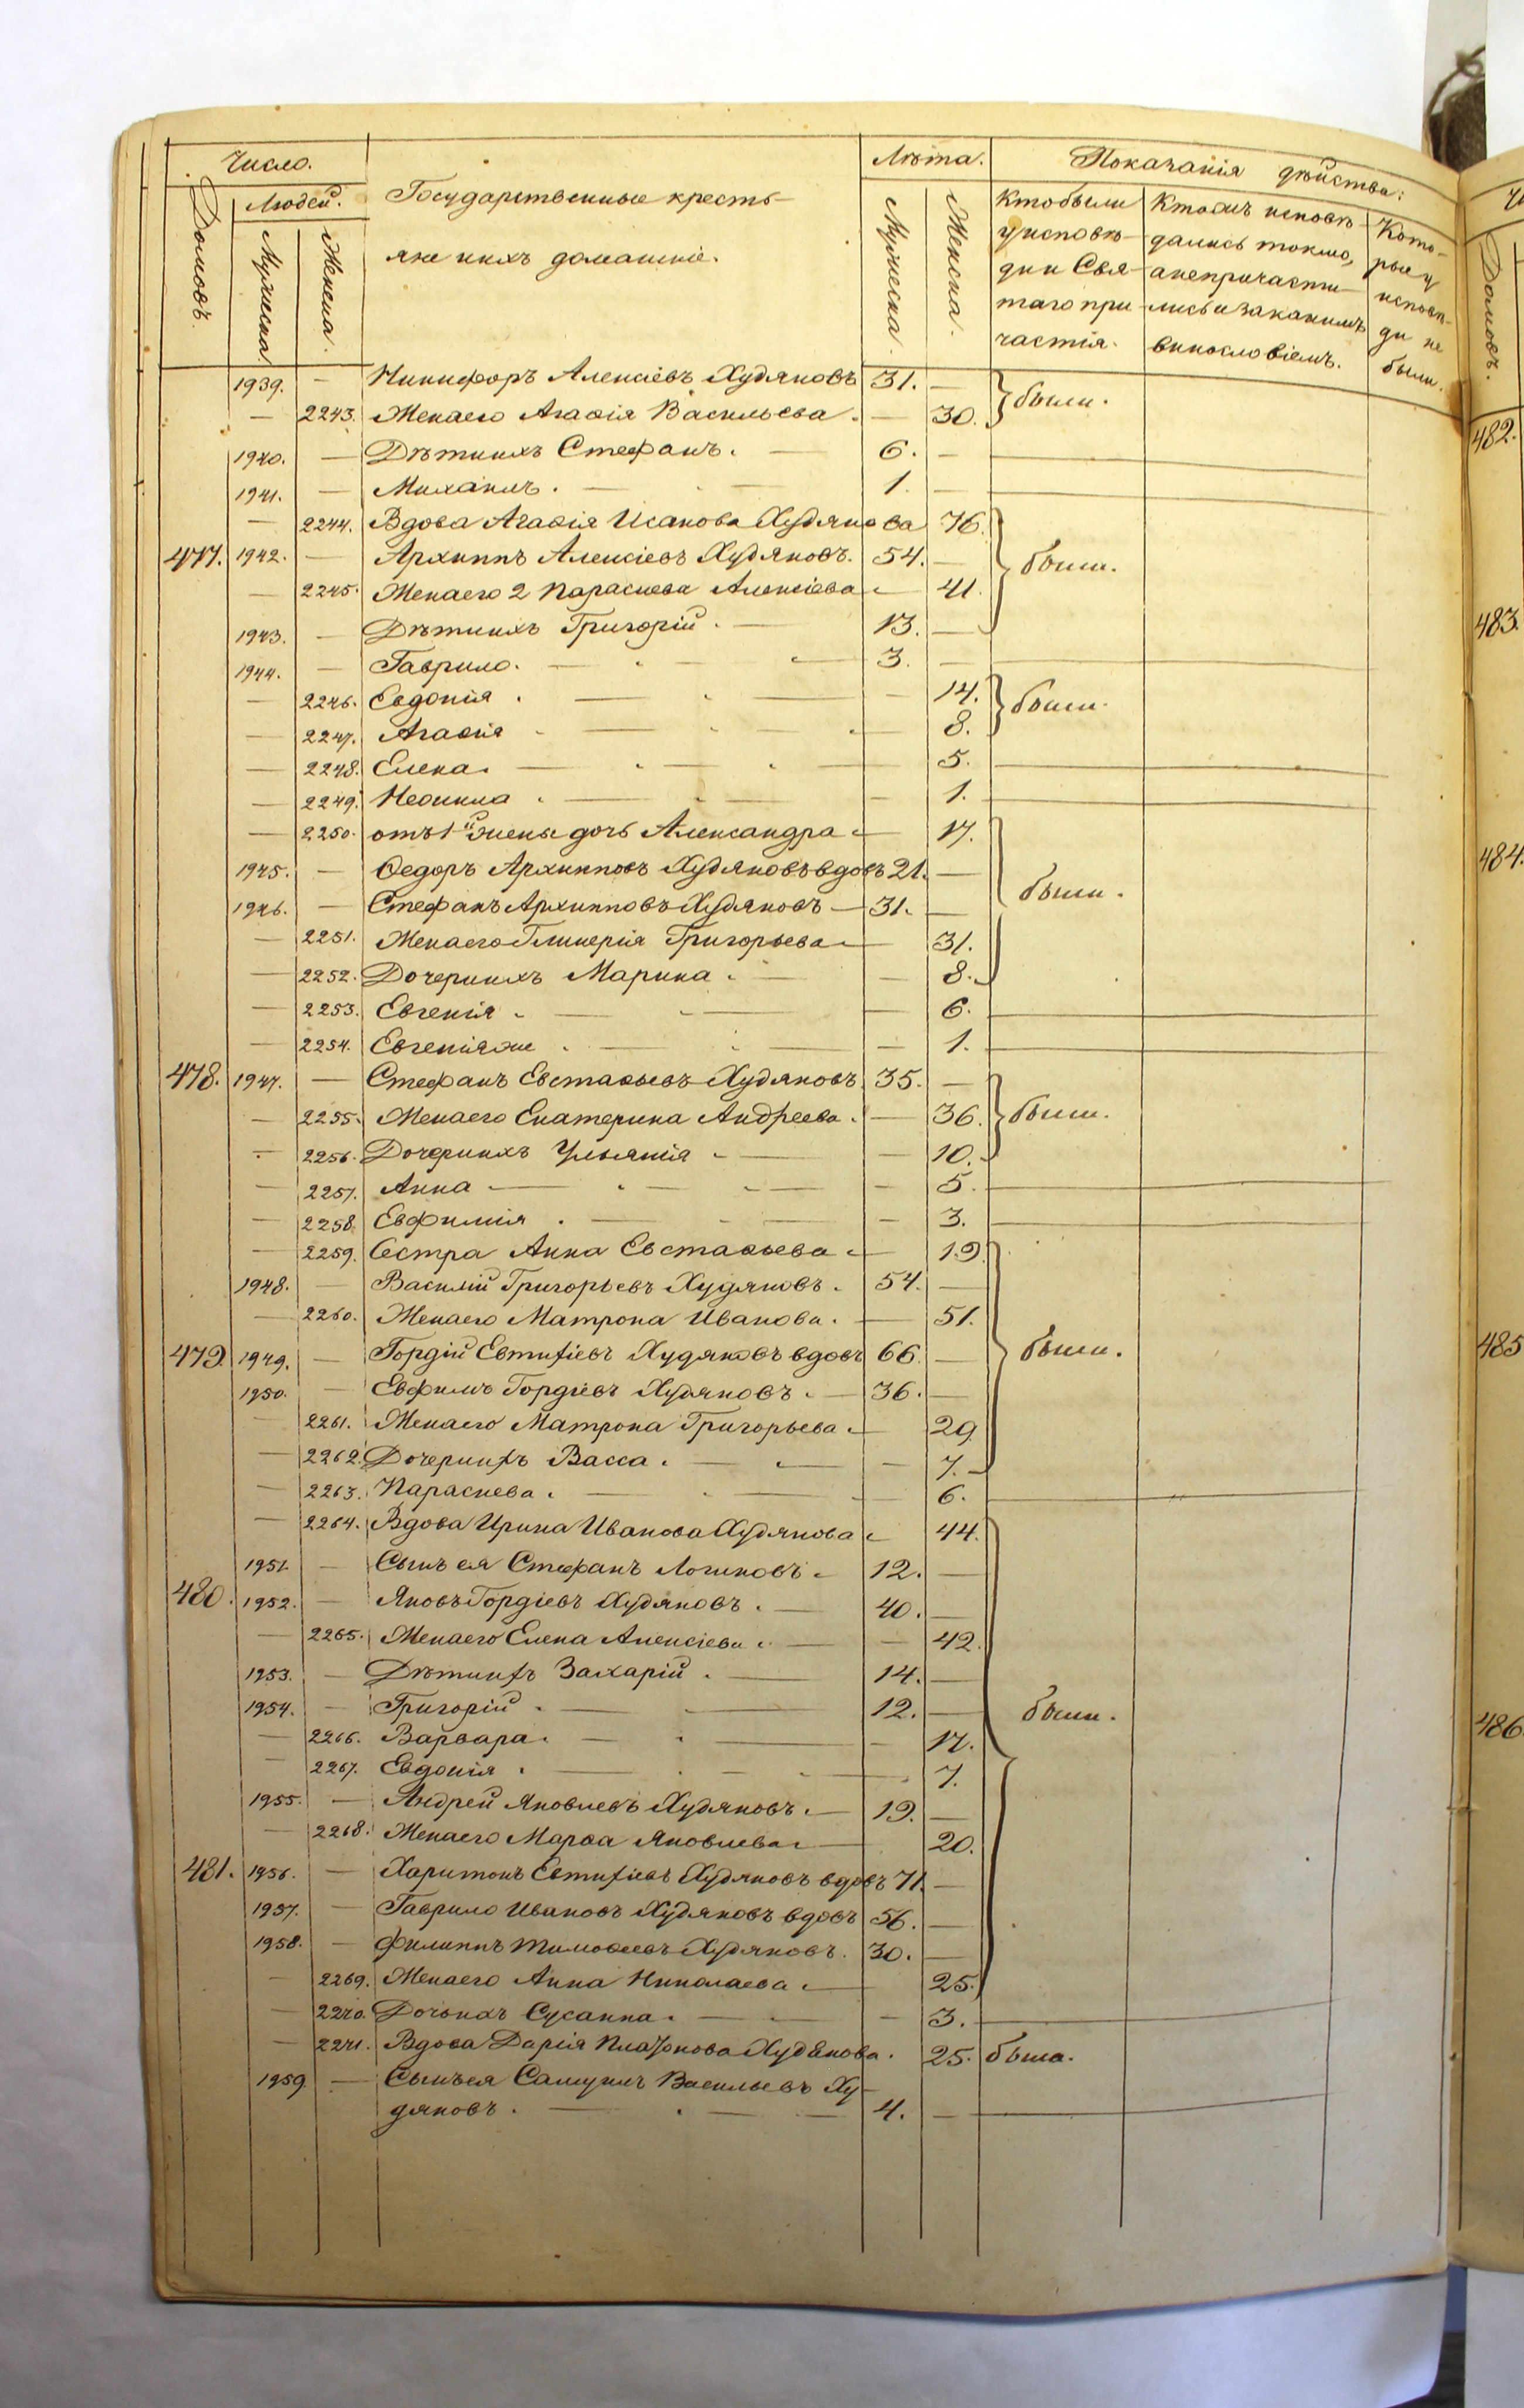 Число.
Лѣта.
Показанія дѣйства:
Людей.
Домовъ.
Мужеска
Женска.
Государственные кресть-
яне и ихъ домашніе.
Мужеска.
Женска.
Кто были
у исповѣ-
ди и Свя-
таго при
частія.
Кто изъ исповѣ-
дались токмо,
а не причасти-
лись и за какимъ
винословіемъ.
Кото-
рые у
исповѣ-
ди не
были.
1939. — Никифоръ Алексіевъ Худяковъ 31. —
— 2243. Жена его Агаѳія Васильева. — 30. были.
1940. — Дѣти ихъ Стефанъ. — 6. —
1941. — Михаилъ. — 1. —
— 2244. Вдова Агаѳія Исакова Худякова 76.
477. 1942. — Архиппъ Алексіевъ Худяковъ. 54. — были.
— 2245. Жена его 2 Параскева Алексіева 41.
1943. — Дѣти ихъ Григорій. — 13. —
1944. — Гаврило. — 3. —
— 2246. Евдокія. — 14. были.
— 2247. Агаѳія — 8.
— 2248. Елена. — 5.
— 2249. Неонила. — 1.
— 2250. отъ 1й жены дочь Александра — 17.
1945. — Ѳедоръ Архипповъ Худяковъ вдовъ 21. —
1946. — Стефанъ Архипповъ Худяковъ — 31. — были.
— 2251. Жена его Гликерія Григорьева — 31.
— 2252. Дочери ихъ Марина. — 8.
— 2253. Евгенія. — 6.
— 2254. Евгенія же. — 1.
478. 1947. — Стефанъ Евстаѳьевъ Худяковъ 35. —
— 2255. Жена его Екатерина Андреева. — 36. были.
— 2256. Дочери ихъ Ульянія — 10.
— 2257. Анна — 5.
— 2258. Евфимія. — 3.
— 2259. Сестра Анна Евстаѳьева — 19.
1948. — Василій Григорьевъ Худяковъ. 54. —
— 2260. Жена его Матрона Иванова. — 51.
479. 1949. — Гордій Евтихіевъ Худяковъ вдовъ 66. — были.
1950. — Евфимъ Гордіевъ Худяковъ. — 36. —
— 2261. Жена его Матрона Григорьева — 29.
— 2262. Дочери ихъ Васса. — 7.
— 2263. Параскева. — 6.
— 2264. Вдова Ирина Иванова Худякова 44.
1951. — Сынъ ея Стефанъ Логиновъ. 12. —
480. 1952. — Яковъ Гордіевъ Худяковъ. — 40. —
— 2265. Жена его Елена Алексіева. — 42.
1953. — Дѣти ихъ Захарій. — 14. —
1954. — Григорій. — 12. — были.
— 2266. Варвара. — 17.
— 2267. Евдокія. — 7.
1955. — Андрей Яковлевъ Худяковъ. — 19. —
— 2268. Жена его Марѳа Яковлева — 20.
481. 1956. — Харитонъ Евтихіевъ Худяковъ вдовъ 71. —
1957. — Гаврило Ивановъ Худяковъ вдовъ 56. —
1958. — Филиппъ Тимоѳеевъ Худяковъ. 30. —
— 2269. Жена его Анна Николаева — 25.
— 2270. Дочь ихъ Сусанна. — 3.
— 2271. Вдова Дарія Платонова Худякова. 25. была.
1959. — Сынъ ея Самуилъ Васильевъ Ху-
дяковъ. — 4. —
482.
483.
484.
485
486.
Домовъ.